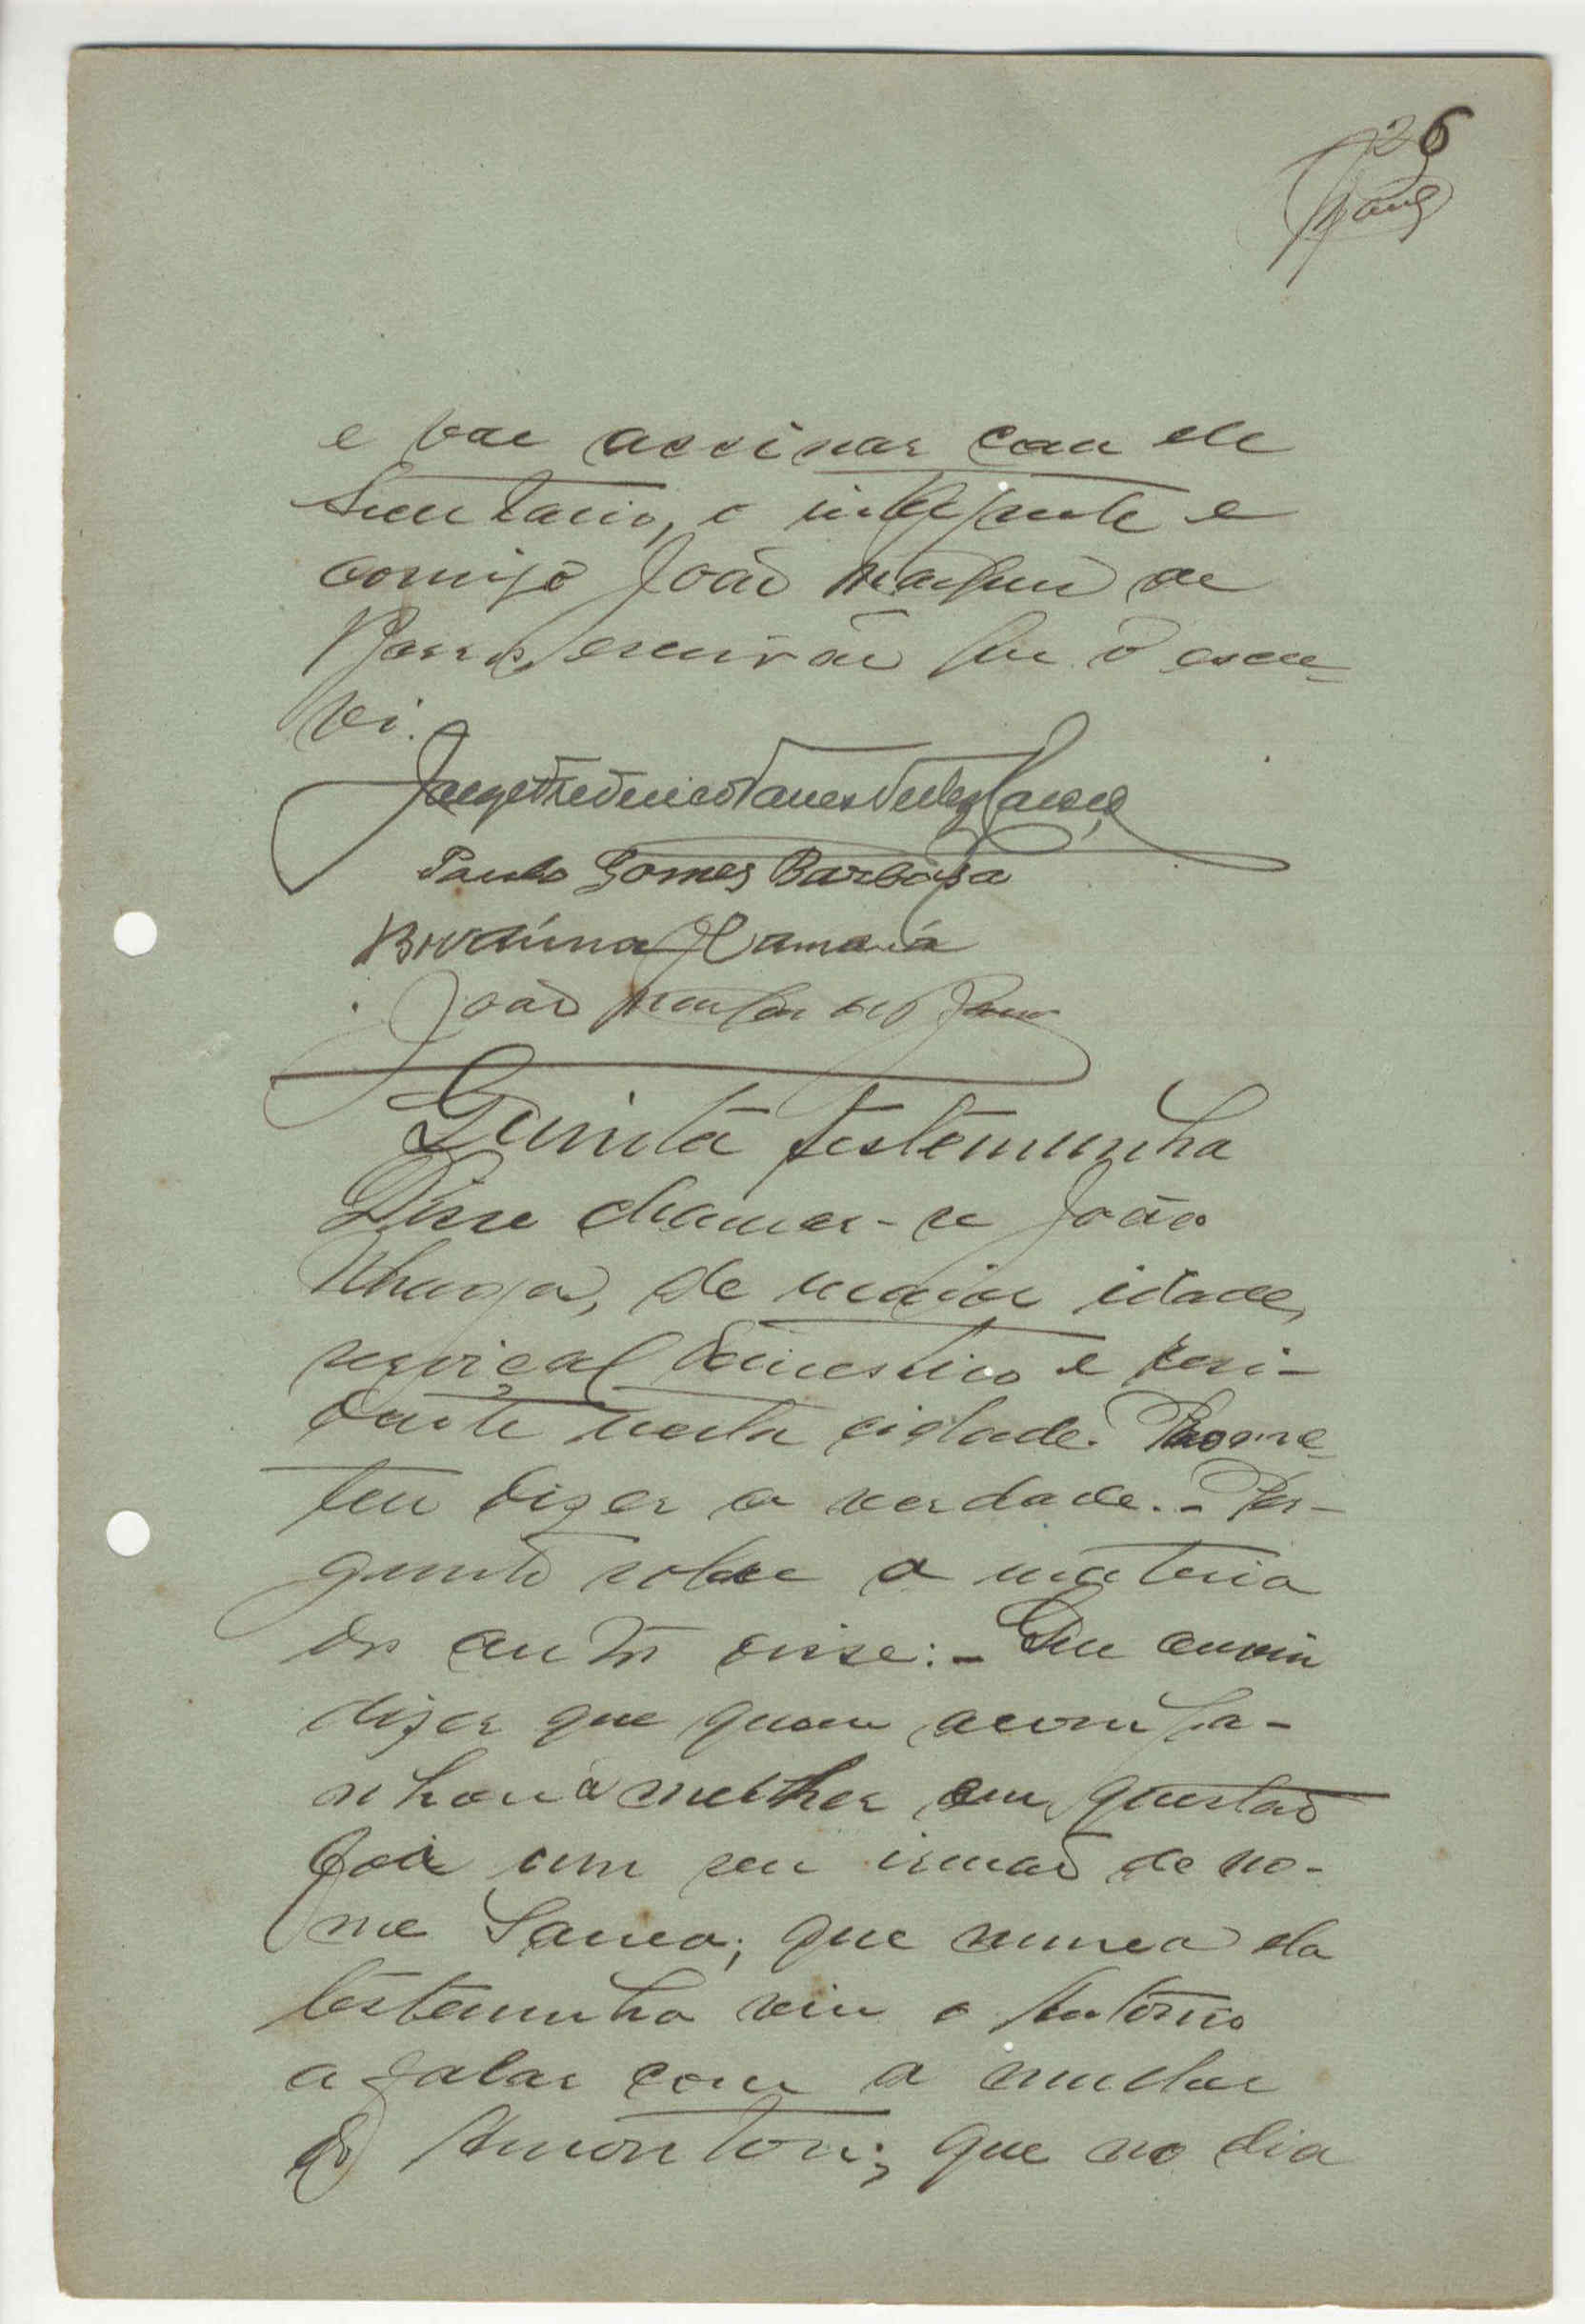 26
e vae assinar com ele
Secretario, o interprete e
comigo João de
Barros, escrivão que o escre-
vi.
Paulo Gomes Barbosa
João de Barros
Quinta testemunha
Disse chamar-se João
de maior idade,
serviçal domestico e resi-
dente nesta cidade. Prome-
teu dizer a verdade. - Per-
guntado sobre a materia
dos autos disse: - Que ouviu
dizer que quem acompa-
nhou a mulher em questão
foi um seu irmão de no-
me que nunca ela
testemunha viu o Antonio
a falar com a mulher
do que no dia